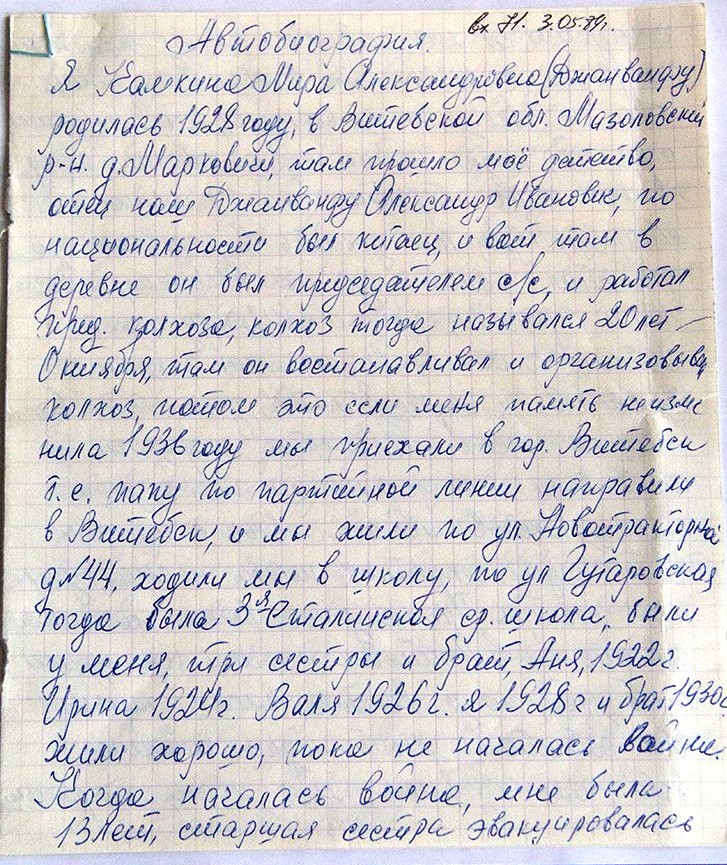 вх 71. 3.05.89г.
Автобиография.
Я Камкина Мира Александровна (Джаиванфу)
родилась 1928 году, в Витебской обл. Мазоловский
р-н. д. Марковичи, там прошло моё детство,
отец наш Джаиванфу Александр Иванович, по
национальности был китаец, и вот там в
деревне он был председателем с/с, и работал
пред. колхоза, колхоз тогда назывался 20 лет
Октября, там он востанавливал и организовывал
колхоз, потом это если меня память не изме
нила 1936 году мы приехали в гор. Витебск
т.е. папу по партийной линии направили
в Витебск, и мы жили по ул. Новотракторной
д №44, ходили мы в школу, по ул Гутаровская
тогда была 3я Сталинская ср. школа, были
у меня, три сестры и брат, Аня, 1922г.
Ирина 1924г. Валя 1926г. я 1928г и брат 1930г
жили хорошо, пока не началась война.
Когда началась война, мне было
13 лет, старшая сестра эвакуировалась